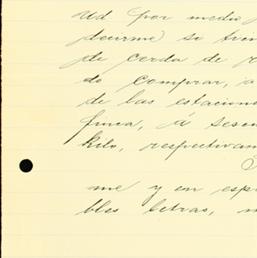 Ud por medio
decirme si
de cerda de
do comprar, a
de las estacion
finca, á sesen
kilo, respectivam
me y en esp
bles letras, m